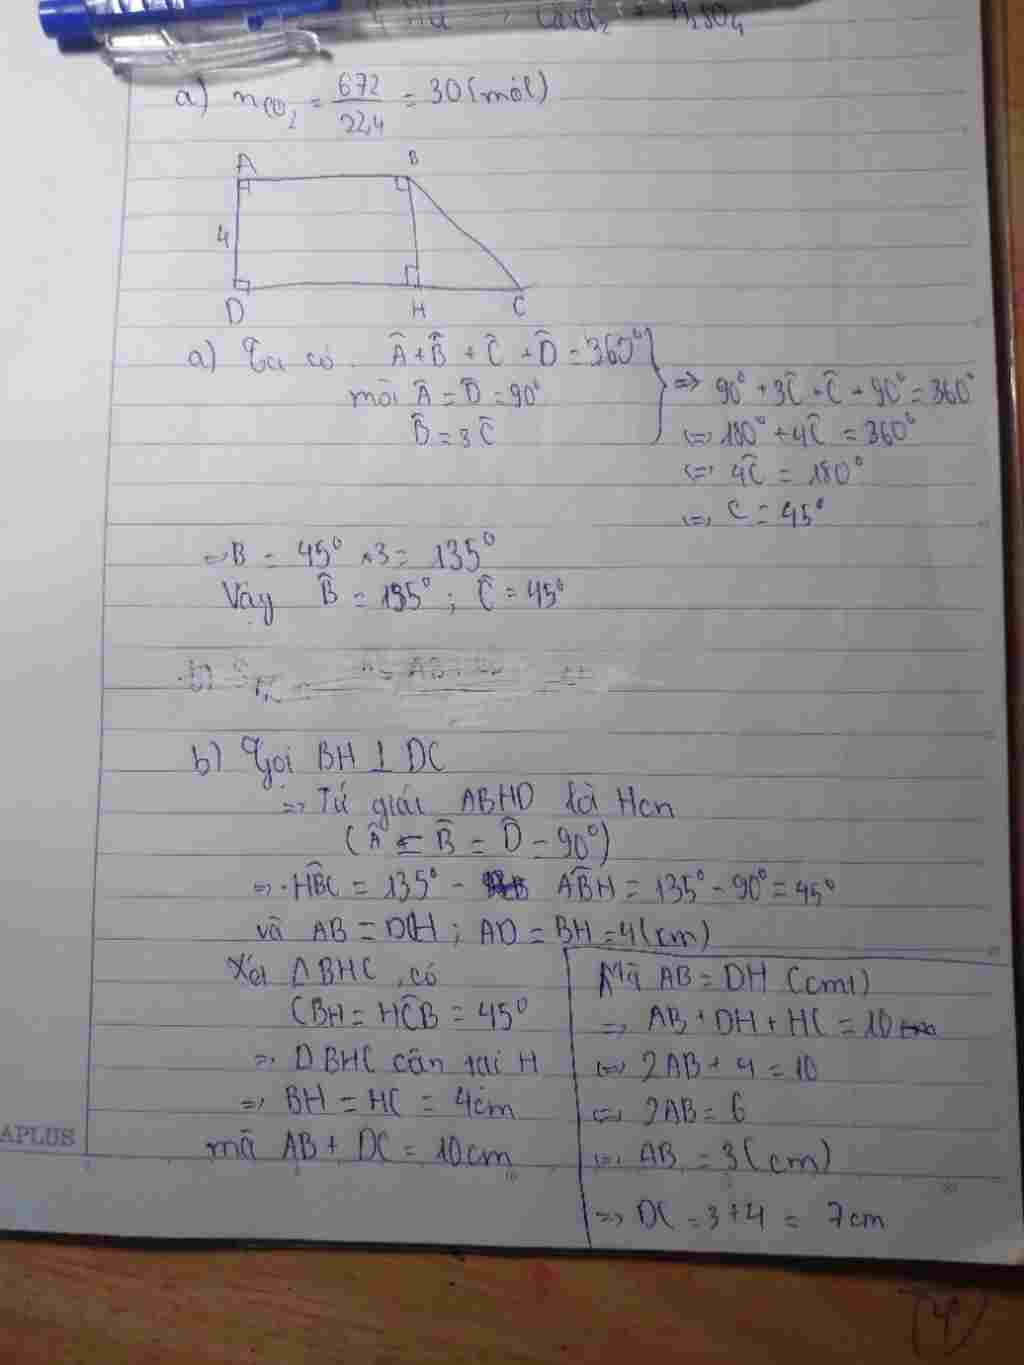 a) nCO₂ = 672/22,4 = 30 (mol)
A B
4
D H C
a) Ta có Â + B̂ + Ĉ + D̂ = 360°
mà Â = D̂ = 90°
B̂ = 3Ĉ
=> 90° + 3Ĉ + Ĉ + 90° = 360°
<=> 180° + 4Ĉ = 360°
<=> 4Ĉ = 180°
<=> C = 45°
=> B = 45° . 3 = 135°
Vậy B̂ = 135° ; Ĉ = 45°
b) Gọi BH ⊥ DC
=> Tứ giác ABHD là Hcn
(Â = B̂ = D̂ = 90°)
=> HB̂C = 135° - AB̂H = 135° - 90° = 45°
và AB = DH ; AD = BH = 4(cm)
Xét ΔBHC có
CBH = HĈB = 45°
=> ΔBHC cân tại H
=> BH = HC = 4cm
mà AB + DC = 10cm
Mà AB = DH (cmt)
=> AB + DH + HC = 10
<=> 2AB + 4 = 10
<=> 2AB = 6
<=> AB = 3(cm)
=> DC = 3 + 4 = 7cm
APLUS